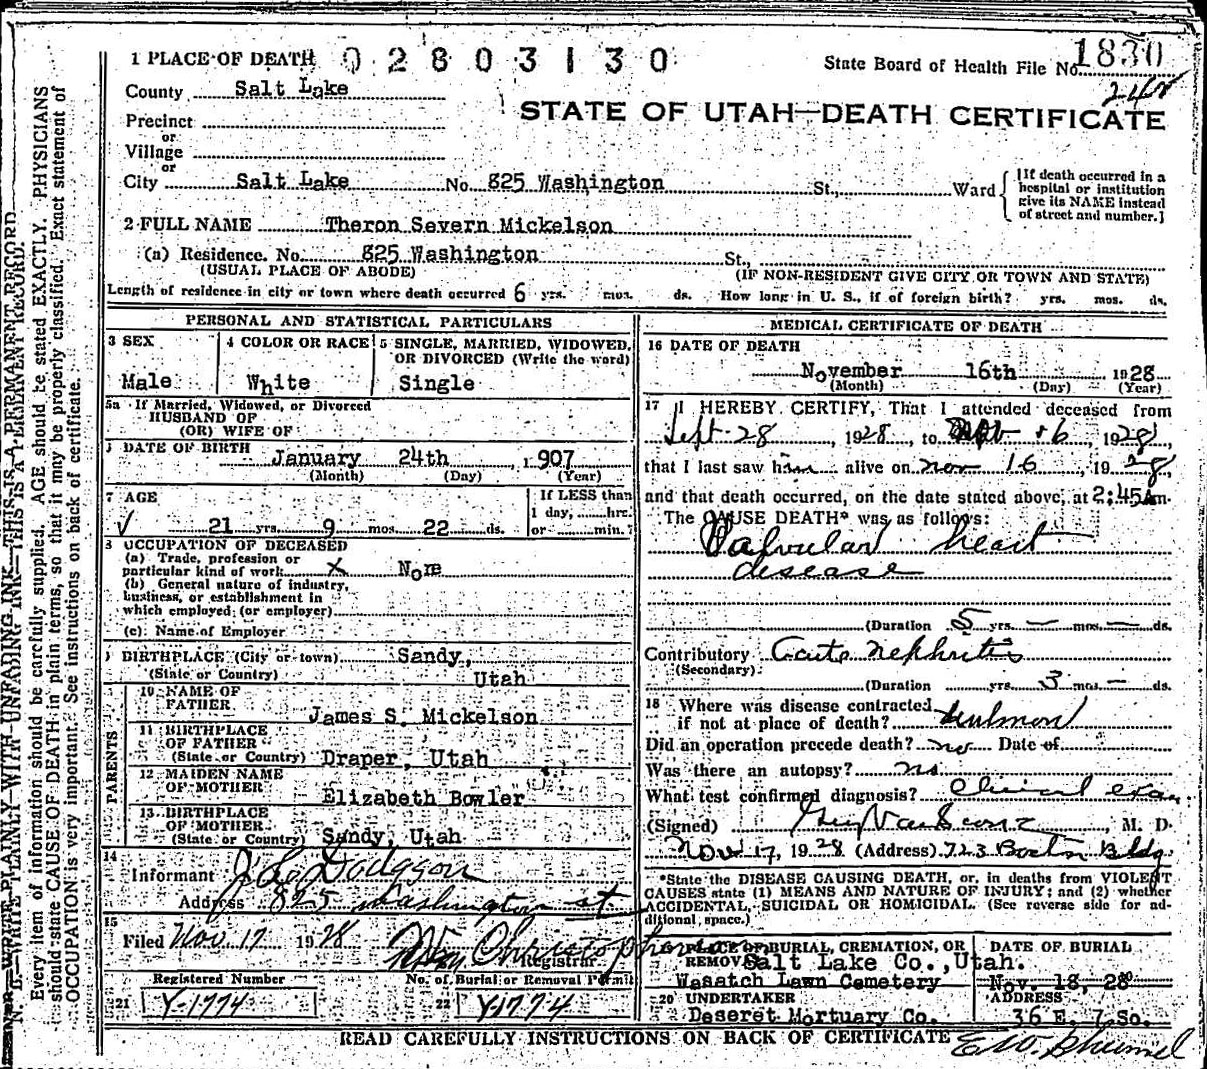 1 PLACE OF DEATH 02803130
State Board of Health File No. 1830
248
County Salt Lake
STATE OF UTAH—DEATH CERTIFICATE
Precinct
or
Village
or
City Salt Lake No. 825 Washington St., Ward
[If death occurred in a hospital or institution give its NAME instead of street and number.]
2 FULL NAME Theron Severn Mickelson
(a) Residence. No. 825 Washington St.,
(USUAL PLACE OF ABODE) (IF NON-RESIDENT GIVE CITY OR TOWN AND STATE)
Length of residence in city or town where death occurred 6 yrs. mos. ds. How long in U. S., if of foreign birth? yrs. mos. ds.
PERSONAL AND STATISTICAL PARTICULARS
3 SEX
Male
4 COLOR OR RACE
White
5 SINGLE, MARRIED, WIDOWED,
OR DIVORCED (Write the word)
Single
5a If Married, Widowed, or Divorced
HUSBAND OF
(OR) WIFE OF
DATE OF BIRTH
January 24th, 1907
(Month) (Day) (Year)
7 AGE
21 yrs. 9 mos. 22 ds.
If LESS than
1 day, hrs.
or min.?
8 OCCUPATION OF DECEASED
(a) Trade, profession or
particular kind of work x None
(b) General nature of industry,
business, or establishment in
which employed (or employer)
(c) Name of Employer
9 BIRTHPLACE (City or town) Sandy,
(State or Country) Utah
PARENTS
10 NAME OF
FATHER
James S. Mickelson
11 BIRTHPLACE
OF FATHER
(State or Country) Draper, Utah
12 MAIDEN NAME
OF MOTHER
Elizabeth Bowler
13 BIRTHPLACE
OF MOTHER
(State or Country) Sandy, Utah
14
Informant Dodgson
Address 825 Washington st
15
Filed Nov. 17 1928 Wm Christopherson
Registrar
Registered Number No. of Burial or Removal Permit
21 Y-1774 22 Y-1774
MEDICAL CERTIFICATE OF DEATH
16 DATE OF DEATH
November 16th 1928
(Month) (Day) (Year)
17 I HEREBY CERTIFY, That I attended deceased from
Sept 28, 1928, to 16, 1928,
that I last saw him alive on Nov 16, 1928,
and that death occurred, on the date stated above, at 2:45 Am.
The CAUSE DEATH* was as follows:
Valvular heart
disease
(Duration 5 yrs. — mos. — ds.
Contributory Acute Nephritis
(Secondary)
(Duration yrs. 3 mos. — ds.
18 Where was disease contracted
if not at place of death?
Did an operation precede death? no Date of
Was there an autopsy? no
What test confirmed diagnosis? Clinical exam
(Signed) M. D.
Nov 17, 1928 (Address) 723 Boston Bldg
*State the DISEASE CAUSING DEATH, or, in deaths from VIOLENT
CAUSES state (1) MEANS AND NATURE OF INJURY; and (2) whether
ACCIDENTAL, SUICIDAL OR HOMICIDAL. (See reverse side for ad-
ditional space.)
PLACE OF BURIAL, CREMATION, OR
REMOVAL Salt Lake Co., Utah.
Wasatch Lawn Cemetery
DATE OF BURIAL
Nov. 18, 28
20 UNDERTAKER
Deseret Mortuary Co.
ADDRESS
36 E. 7 So.
READ CAREFULLY INSTRUCTIONS ON BACK OF CERTIFICATE
N. B.—WRITE PLAINLY WITH UNFADING INK—THIS IS A PERMANENT RECORD.
Every item of information should be carefully supplied. AGE should be stated EXACTLY. PHYSICIANS
should state CAUSE OF DEATH in plain terms, so that it may be properly classified. Exact statement of
OCCUPATION is very important. See instructions on back of certificate.